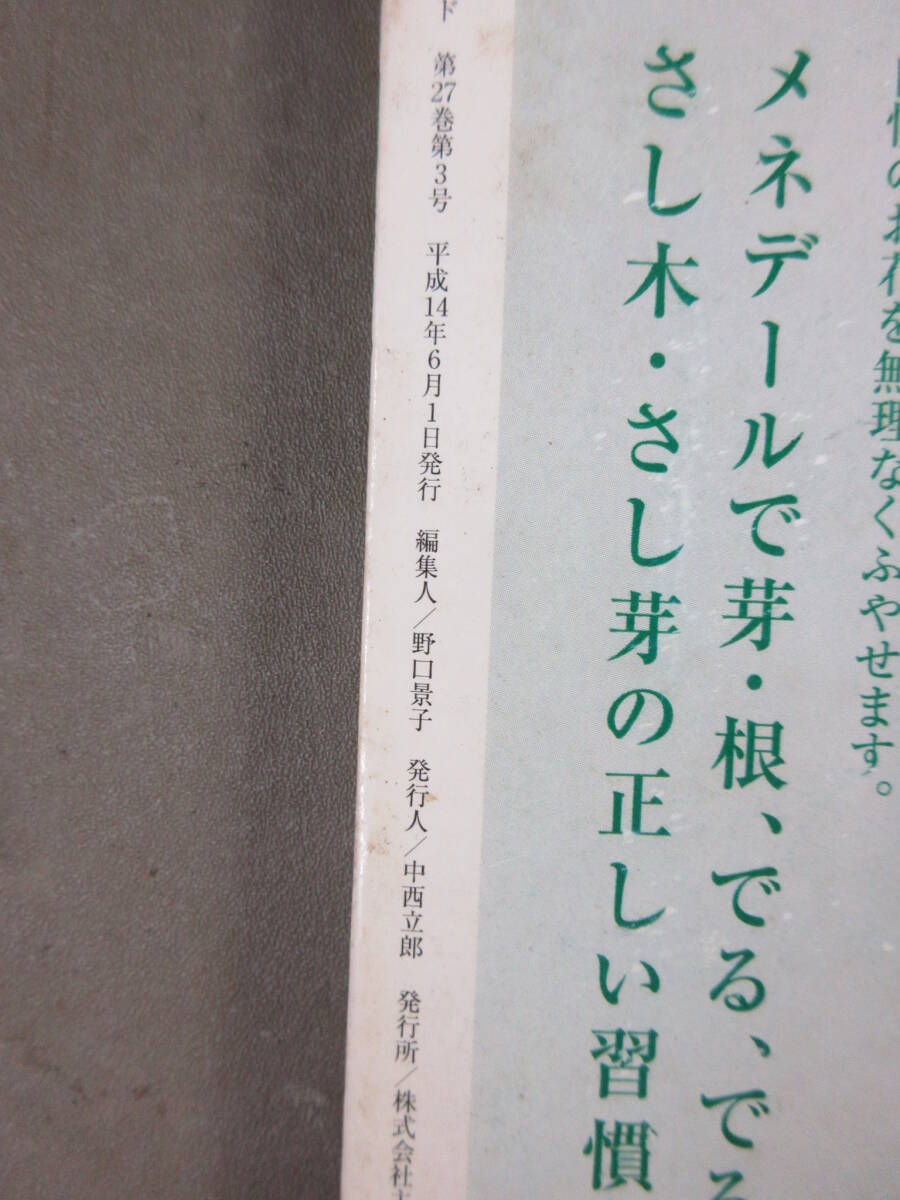 自慢のお花を無理なくふやせます。
メネデールで芽・根、でる、でる
さし木・さし芽の正しい習慣
ド 第27巻第3号 平成14年6月1日発行 編集人／野口景子 発行人／中西立郎 発行所／株式会社主